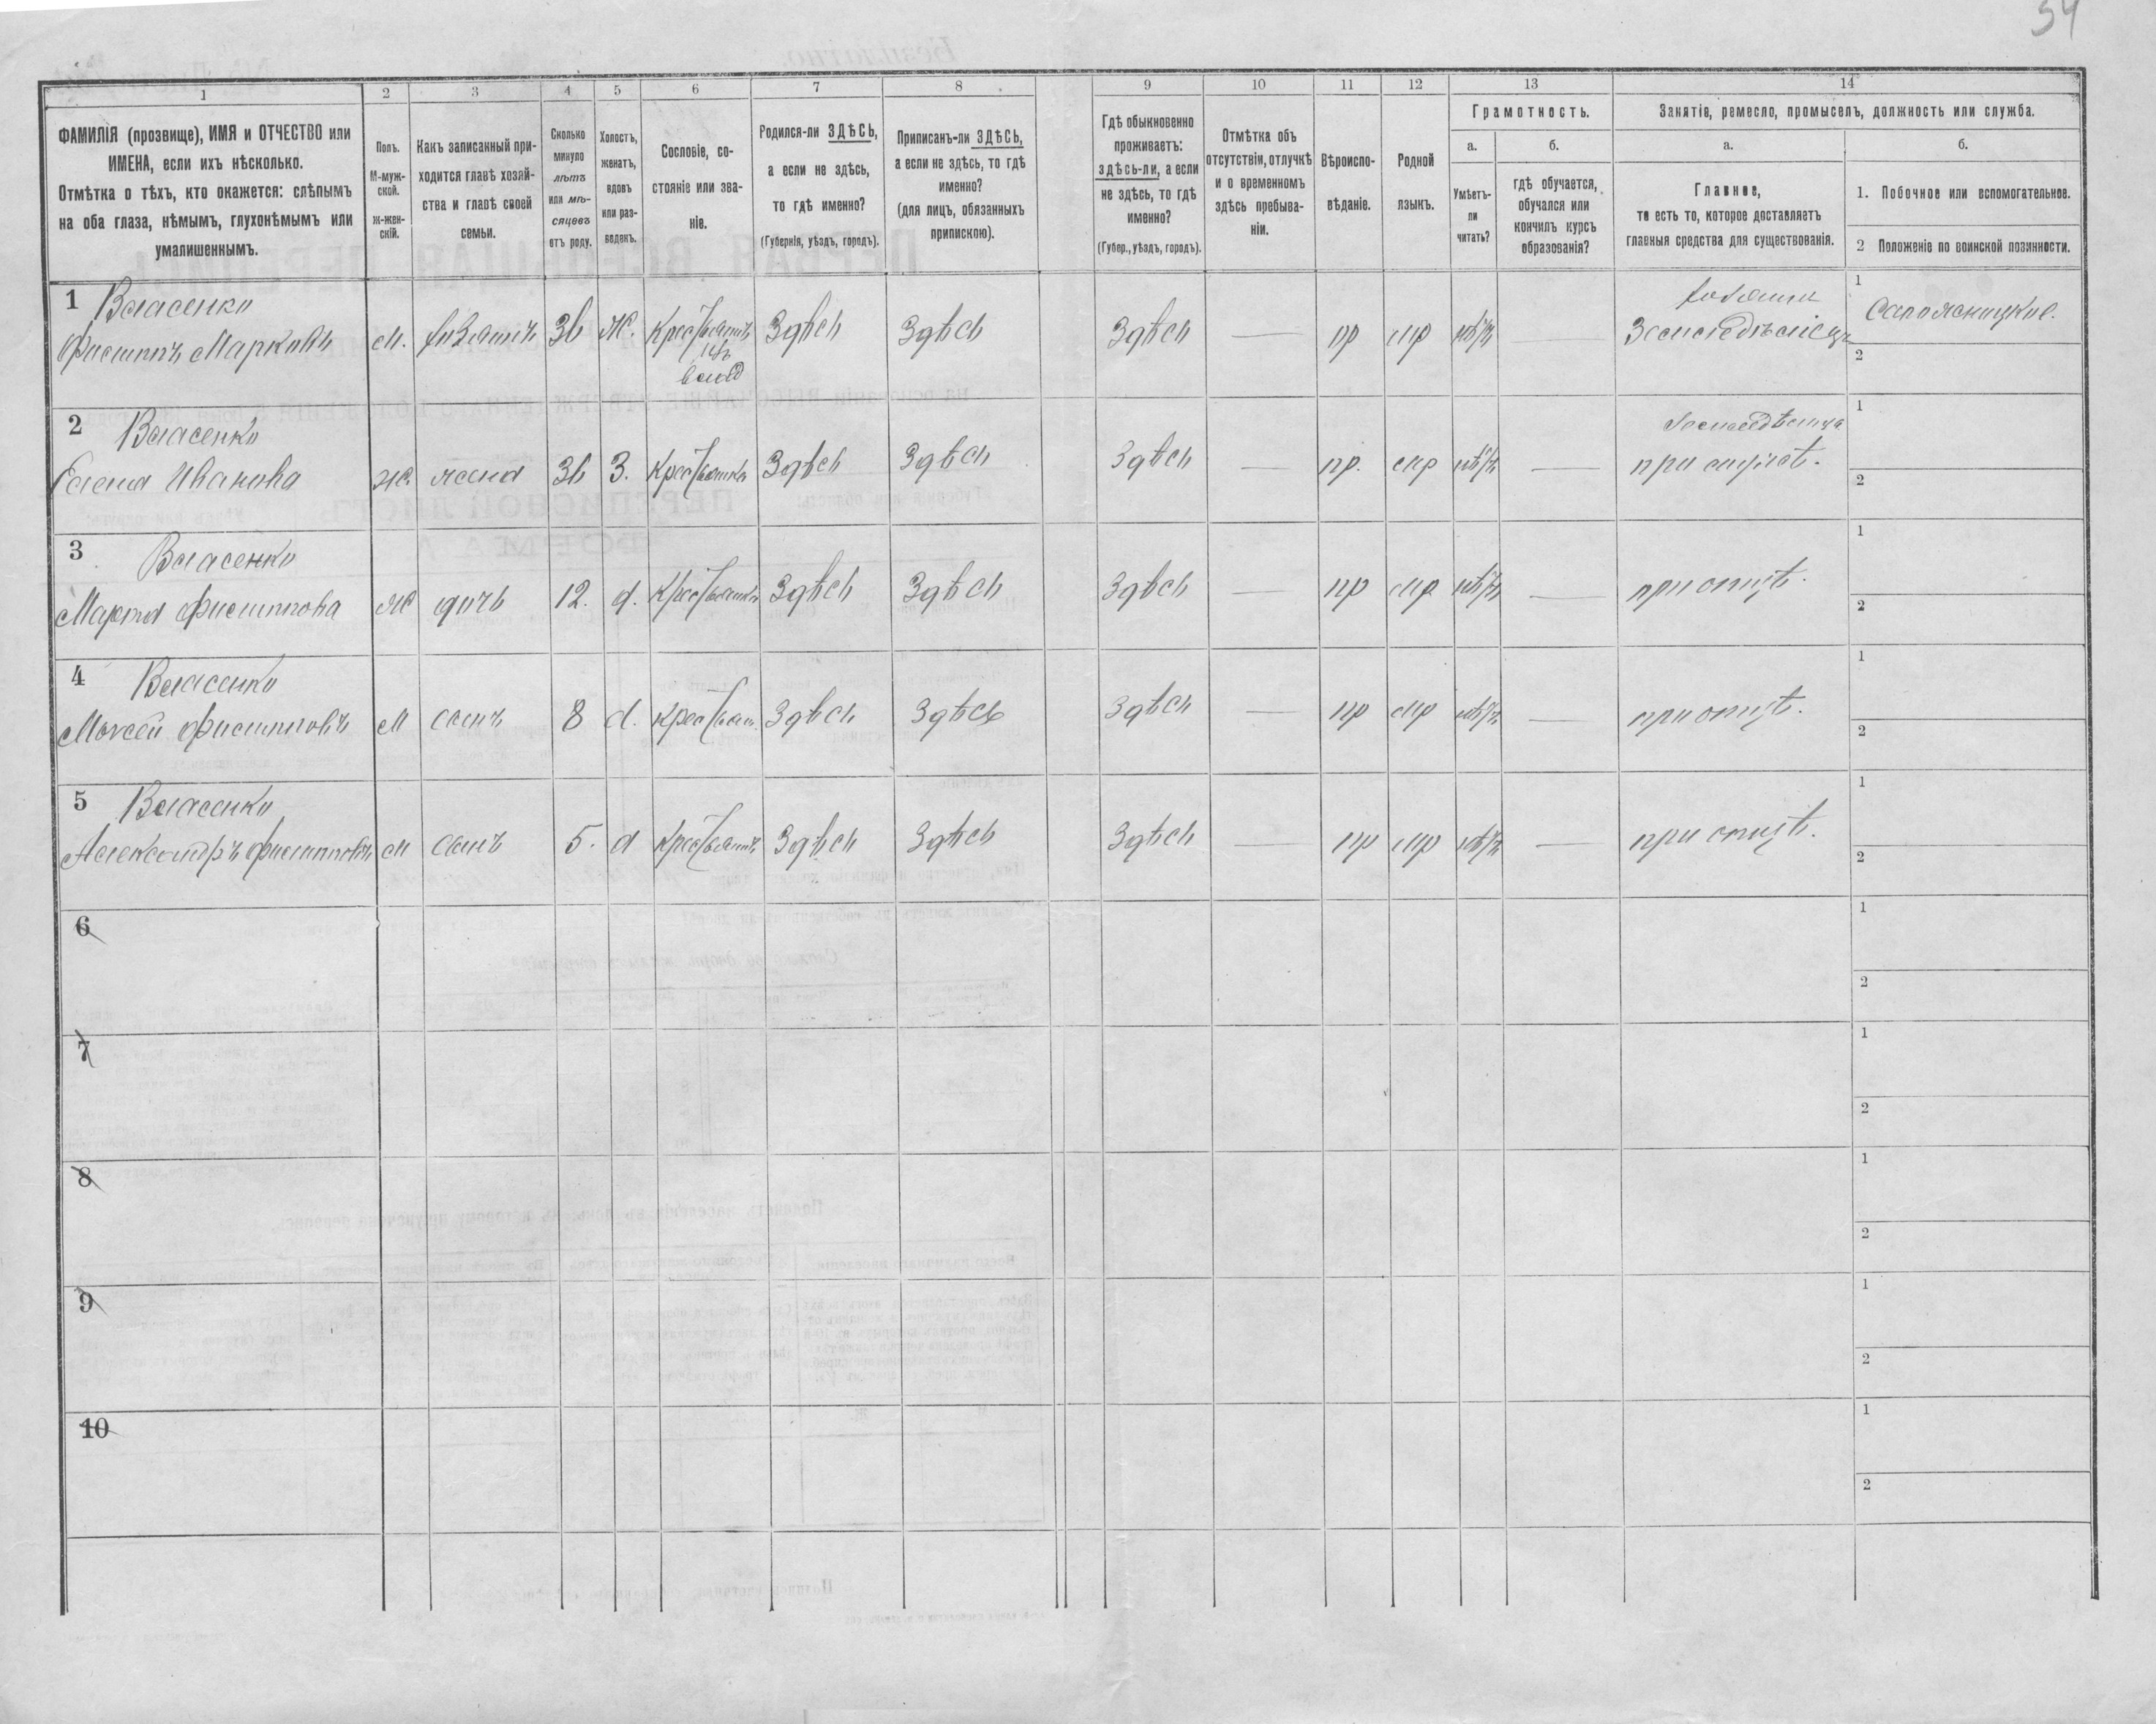 54
1 2 3 4 5 6 7 8 9 10 11 12 13 14
ФАМИЛІЯ (прозвище), ИМЯ и ОТЧЕСТВО или
ИМЕНА, если ихъ нѣсколько.
Отмѣтка о тѣхъ, кто окажется: слѣпымъ
на оба глаза, нѣмымъ, глухонѣмымъ или
умалишеннымъ.
Полъ.
М-муж-
ской.
ж-жен-
скій.
Какъ записанный при-
ходится главѣ хозяй-
ства и главѣ своей
семьи.
Сколько
минуло
лѣтъ
или мѣ-
сяцевъ
отъ роду.
Холостъ,
женатъ,
вдовъ
или раз-
веденъ.
Сословіе, со-
стояніе или зва-
ніе.
Родился-ли ЗДѢСЬ,
а если не здѣсь,
то гдѣ именно?
(Губернія, уѣздъ, городъ).
Приписанъ-ли ЗДѢСЬ,
а если не здѣсь, то гдѣ
именно?
(для лицъ, обязанныхъ
припискою).
Гдѣ обыкновенно
проживаетъ:
здѣсь-ли, а если
не здѣсь, то гдѣ
именно?
(Губер., уѣздъ, городъ).
Отмѣтка объ
отсутствіи, отлучкѣ
и о временномъ
здѣсь пребыва-
ніи.
Вѣроиспо-
вѣданіе.
Родной
языкъ.
Грамотность.
а.
Умѣетъ-
ли
читать?
б.
гдѣ обучается,
обучался или
кончилъ курсъ
образованія?
Занятіе, ремесло, промыселъ, должность или служба.
а.
Главное,
то есть то, которое доставляетъ
главныя средства для существованія.
б.
1. Побочное или вспомогательное.
2 Положеніе по воинской повинности.
1 Власенко
Филиппъ Марковъ м. хозяинъ 36 Ж. Здѣсь Здѣсь Здѣсь — пр мр нѣтъ —
хозяинъ
Земледѣлецъ
1 Сапожницкое.
2
2 Власенко
Елена Иванова ж. жена 36 З. Крестьянка Здѣсь Здѣсь Здѣсь — пр. мр нѣтъ — при мужѣ.
1
2
3 Власенко
Марта Филиппова ж дочь 12. д. Крестьянка Здѣсь Здѣсь Здѣсь — пр мр нѣтъ — при отцѣ.
1
2
4 Власенко
Моисей Филипповъ м сынъ 8 х. Здѣсь Здѣсь Здѣсь — пр мр нѣтъ — при отцѣ.
1
2
5 Власенко
Александръ Филипповъ м сынъ 5. х Крестьянинъ Здѣсь Здѣсь Здѣсь — пр мр нѣтъ — при отцѣ.
1
2
6
1
2
7
1
2
8
1
2
9
1
2
10
1
2